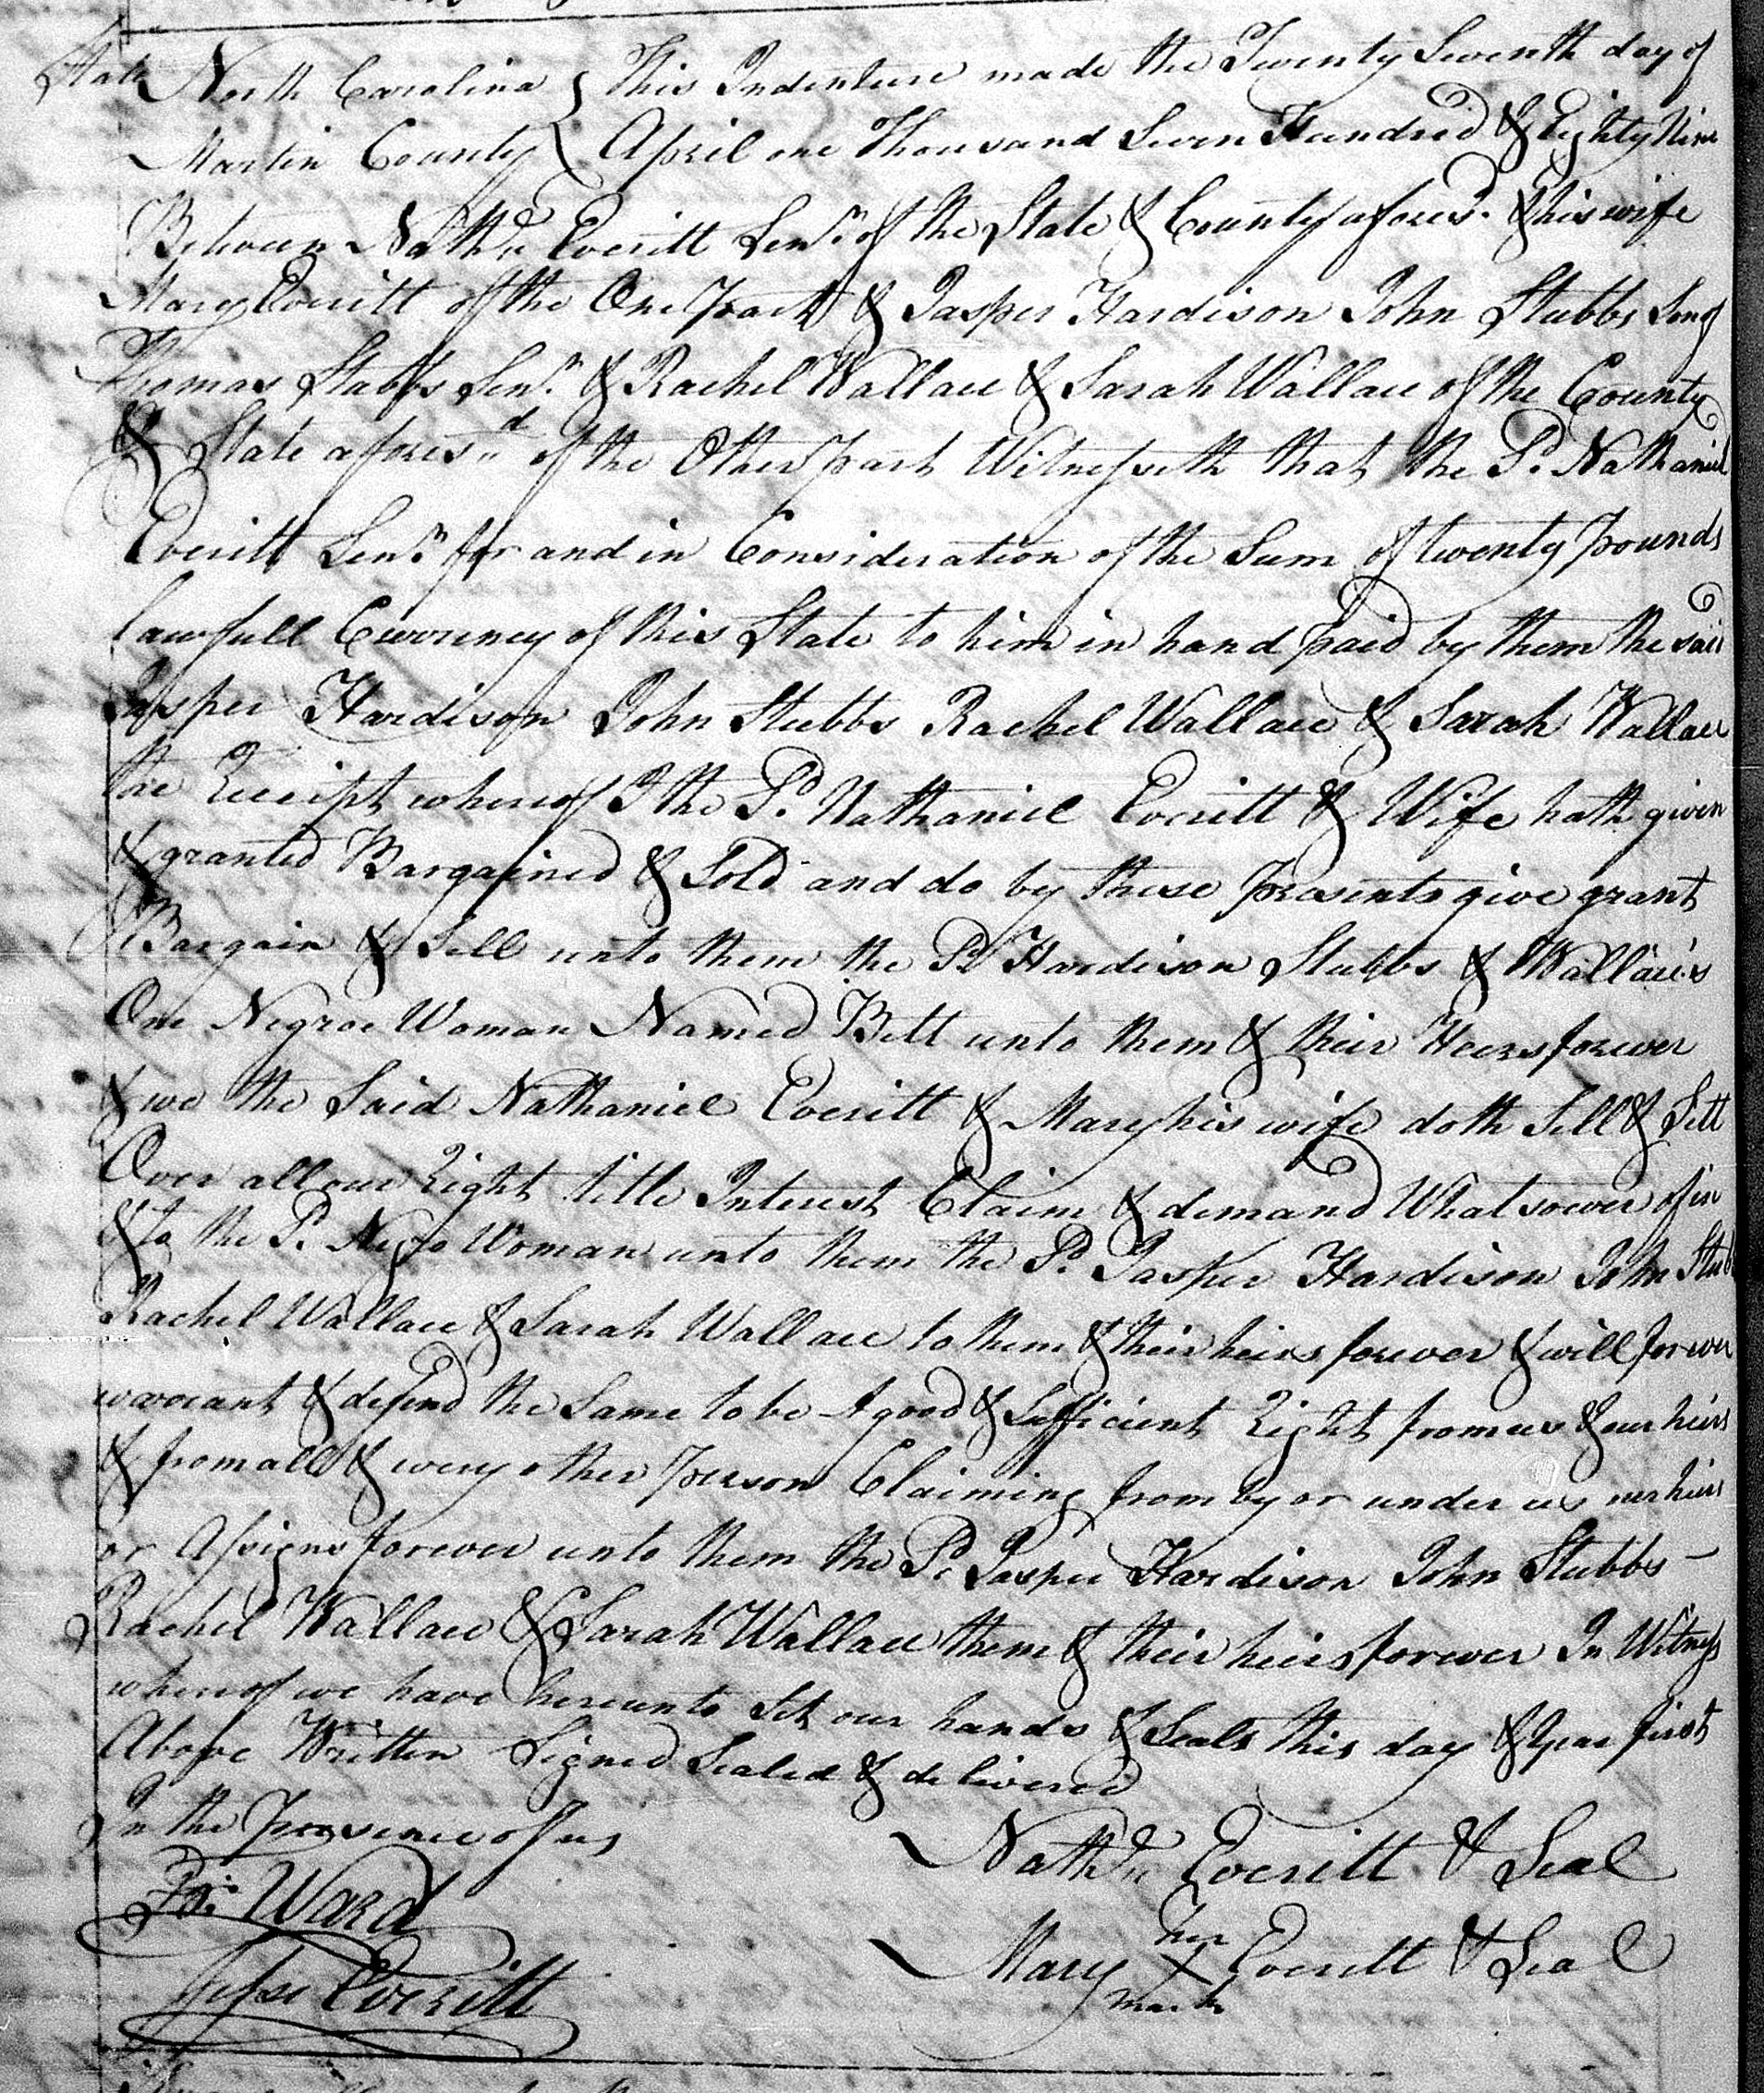 State North Carolina } This Indenture made the Twenty Seventh day of
Martin County } April one Thousand Seven Hundred & Eighty Nine
Between Nathll Everitt Senr. of the State & County afores.d & his wife
Mary Everitt of the One part & Jasper Hardison John Stubbs Son of
Thomas Stubbs Senr. & Rachel Wallace & Sarah Wallace of the County
& State afores.d of the Other part Witnesseth that the Sd. Nathaniel
Everitt Senr. for and in Consideration of the Sum of twenty pounds
lawfull Currency of this State to him in hand paid by them the said
Jasper Hardison John Stubbs Rachel Wallace & Sarah Wallace
the Receipt whereof I the Sd. Nathaniel Everitt & Wife hath given
& granted Bargained & Sold and do by these presents give grant
Bargain & Sell unto them the Sd. Hardison Stubbs & Wallace's
One Negroe Woman Named Bett unto them & their Heirs forever
& we the Said Nathaniel Everitt & Mary his wife doth Sell & Sett
Over all our Right title Interest Claim & demand Whatsoever of in
& to the Sd. Negro Woman unto them the Sd. Jasper Hardison John Stubbs
Rachel Wallace & Sarah Wallace to them & their heirs forever & will forever
warrant & defend the Same to be A good & Sufficient Right from us & our heirs
& from all & every other person Claiming from by or under us our heirs
or Assigns forever unto them the Sd. Jasper Hardison John Stubbs –
Rachel Wallace & Sarah Wallace them & their heirs forever In Witness
whereof we have hereunto Set our hands & Seals this day & Year first
Above Written Signed Sealed & delivered
In the Presence of us
Nathll Everitt & Seal
Ward
her
Mary X Everitt & Seal
mark
Jesse Everitt